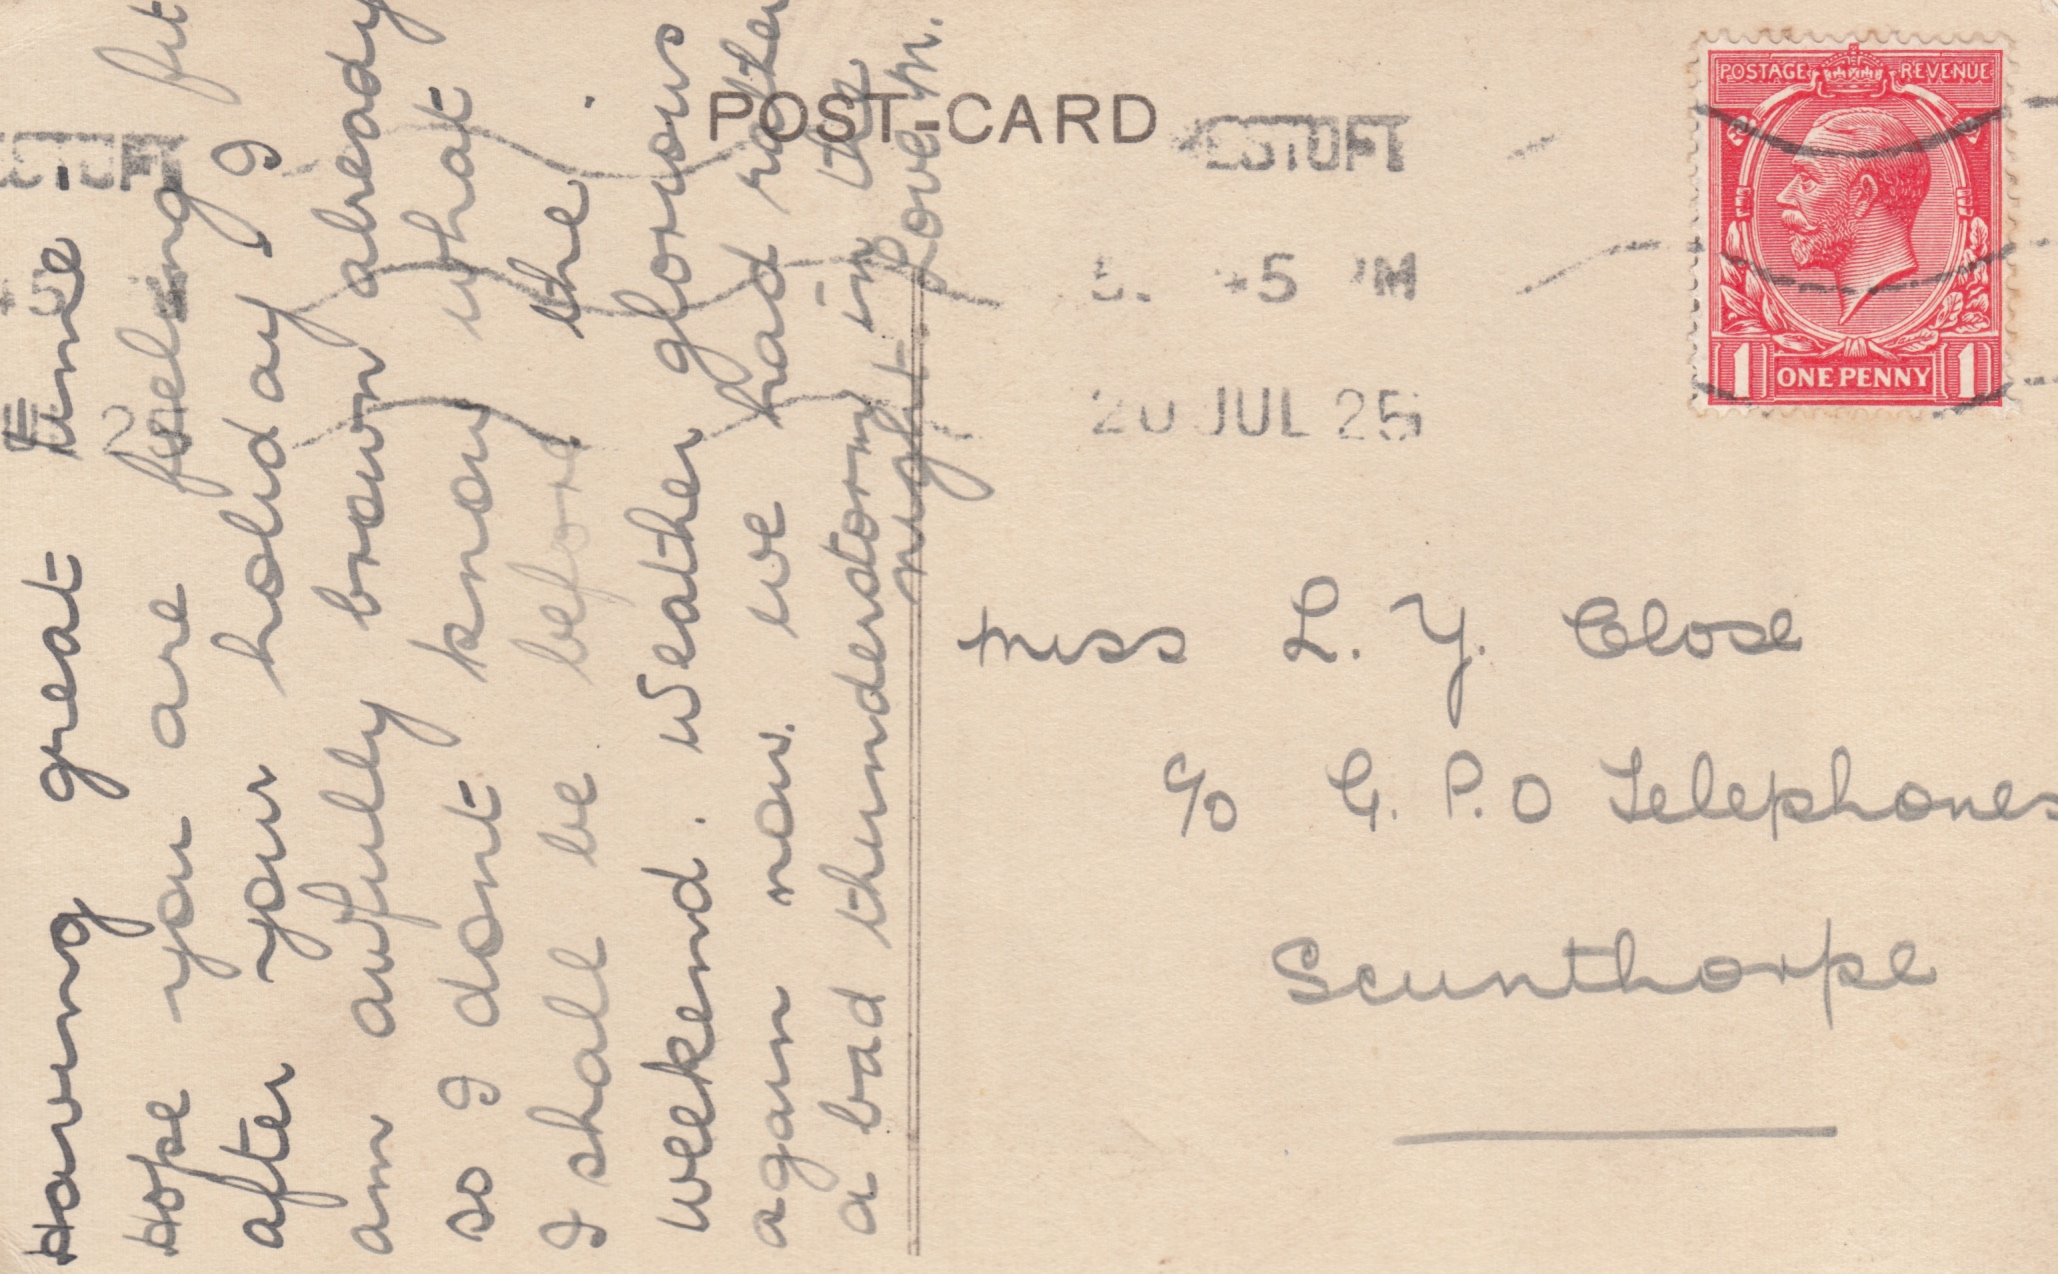 POST-CARD
POSTAGE REVENUE
1 ONE PENNY 1
ESTOFT
5 PM
20 JUL 25
Having great time.
Hope you are feeling fit
after your holiday I
am awfully brown already
so I dont know what
I shall be before the
weekend. Weather glorious
again now. we had rather
a bad thunderstorm in the
night. Love M.
Miss L. Y. Close
c/o G. P. O Telephones
Scunthorpe